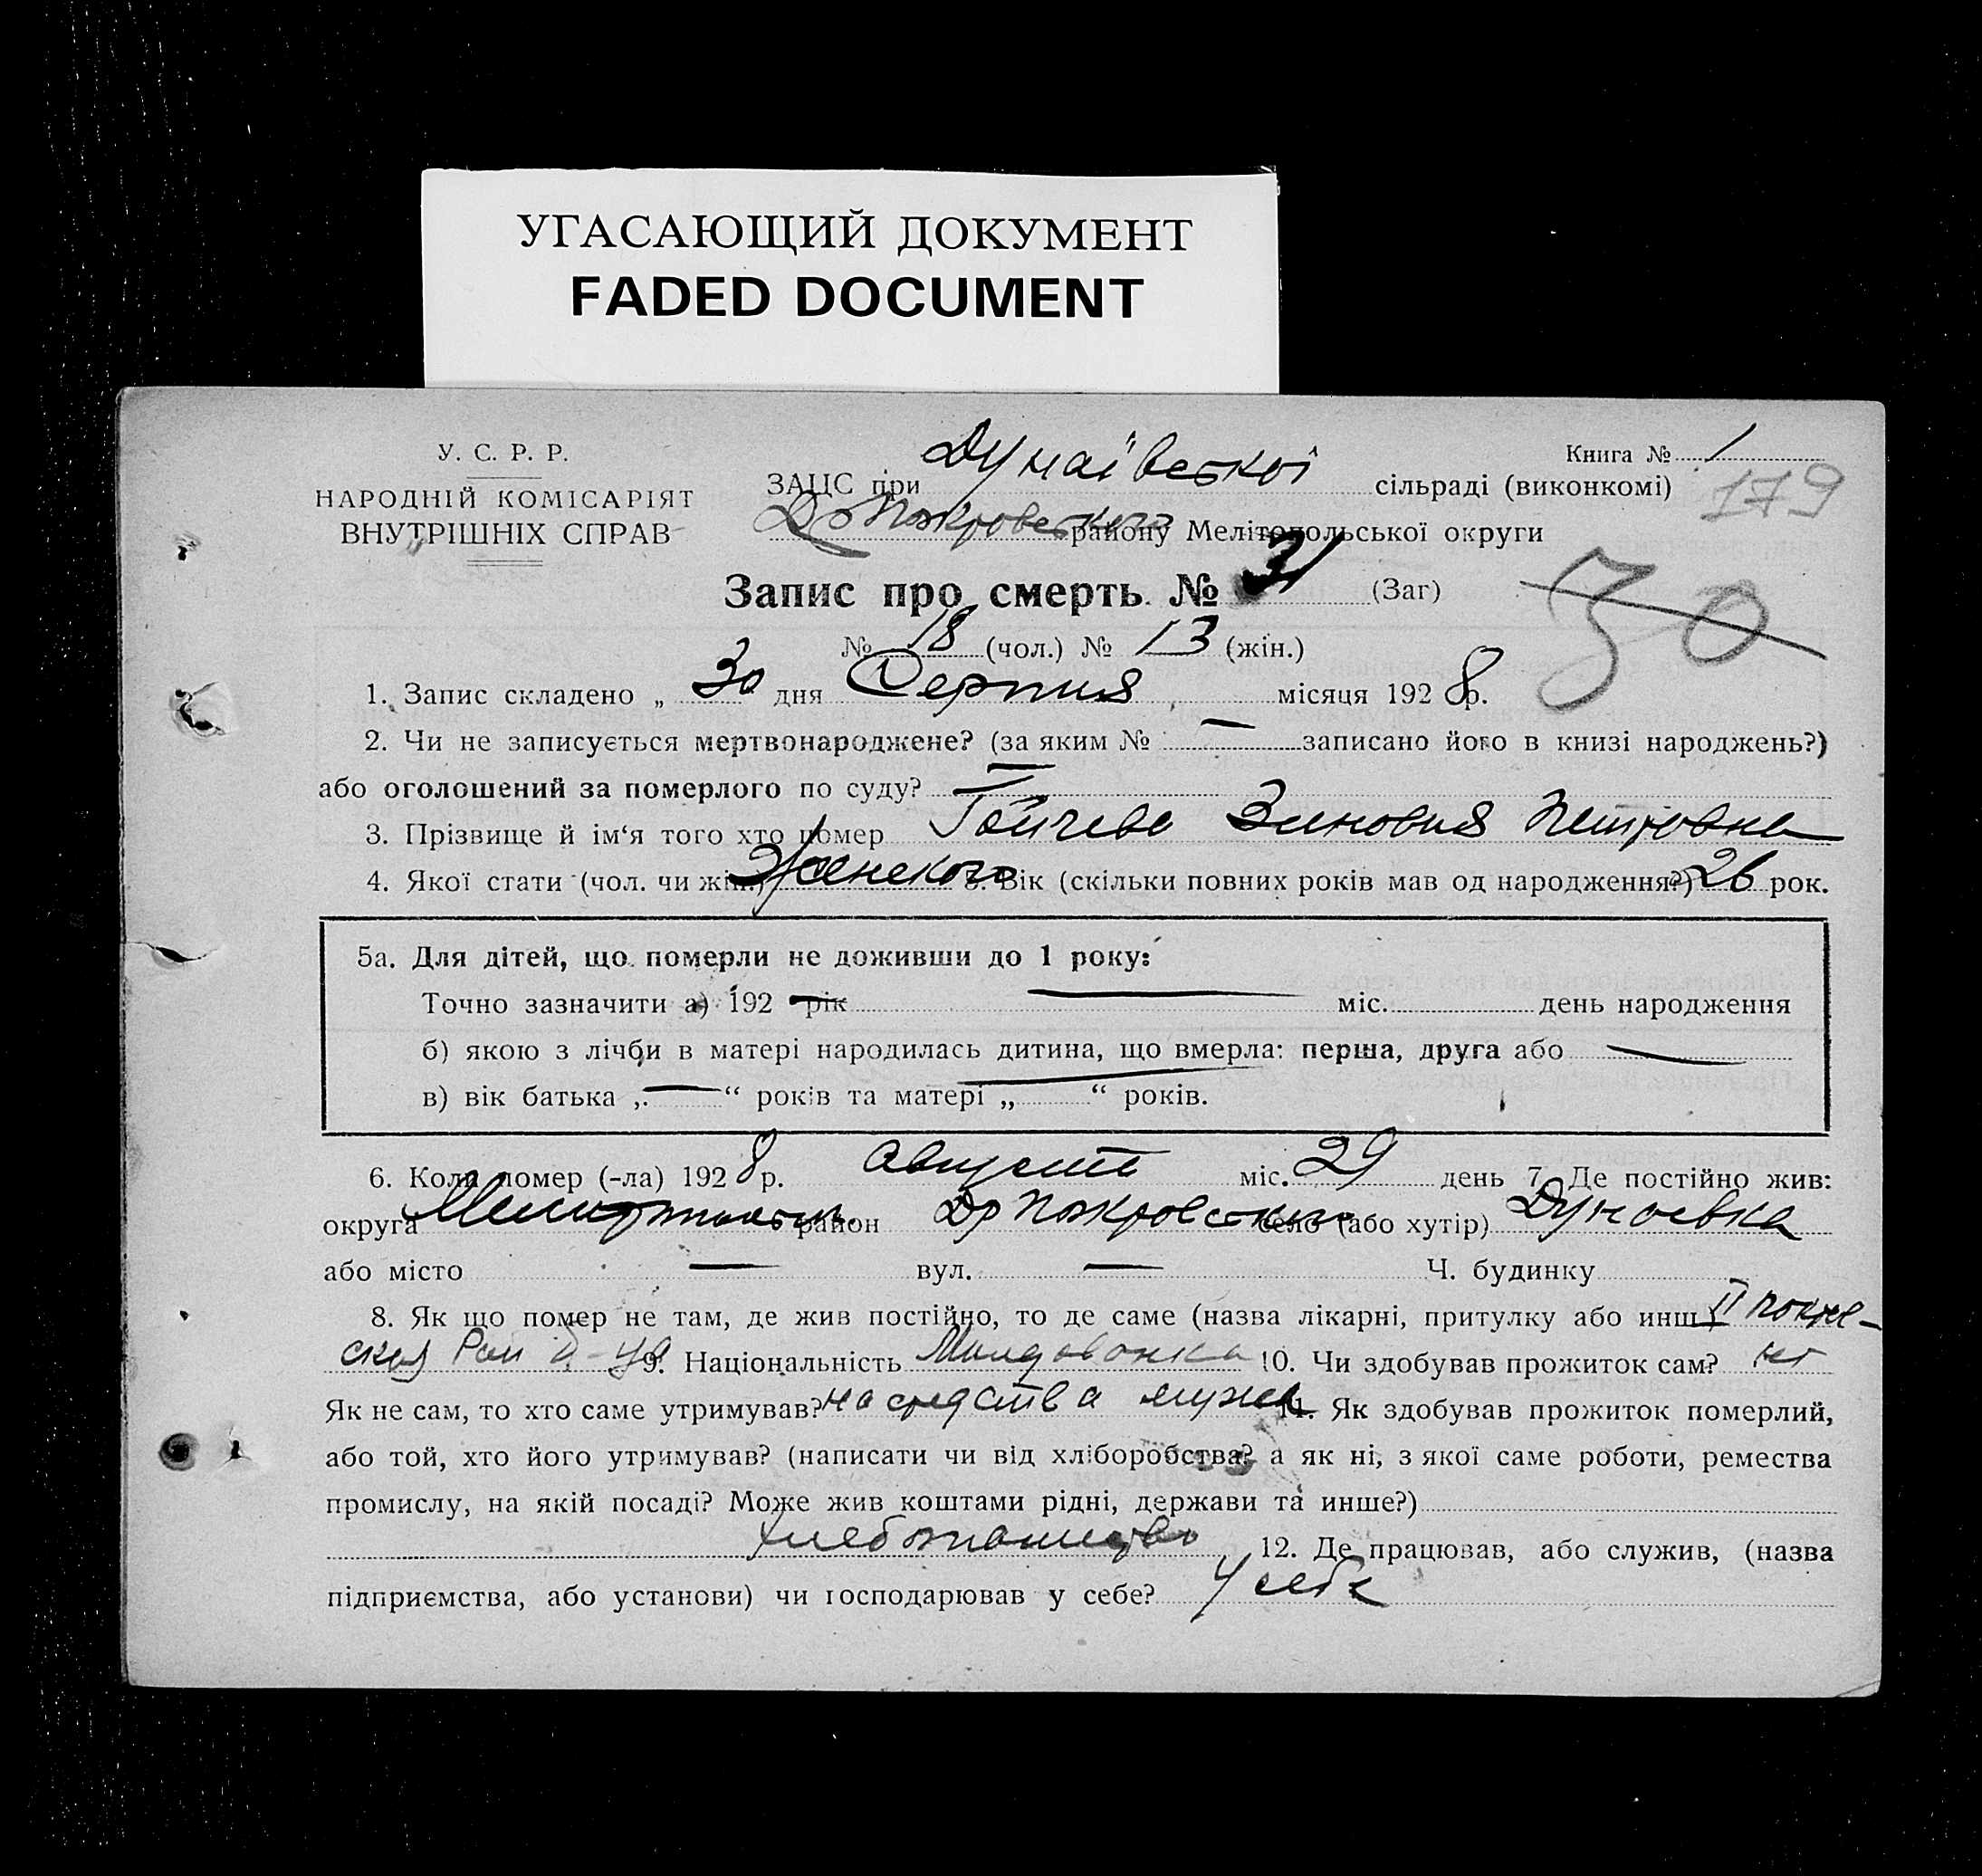 УГАСАЮЩИЙ ДОКУМЕНТ
FADED DOCUMENT
У. С. Р. Р.
НАРОДНІЙ КОМІСАРІЯТ
ВНУТРІШНІХ СПРАВ
Книга № 1
179
ЗАЦС при Дунаївської сільраді (виконкомі)
Др Покровского району Мелітопольської округи
Запис про смерть № 31 (Заг)
30
№ 18 (чол.) № 13 (жін.)
1. Запис складено „ 30 дня Серпня місяця 1928 р.
2. Чи не записується мертвонароджене? (за яким № — записано його в книзі народжень?)
або оголошений за померлого по суду? —
3. Прізвище й ім‘я того хто помер Зиновия Петровна
4. Якої стати (чол. чи жін.) Женского 5. Вік (скільки повних років мав од народження?) 26 рок.
5а. Для дітей, що померли не доживши до 1 року:
Точно зазначити а) 192 рік — міс. день народження
б) якою з лічби в матері народилась дитина, що вмерла: перша, друга або —
в) вік батька „ — “ років та матері „ — “ років.
6. Коли помер (-ла) 1928 р. августа міс. 29 день 7. Де постійно жив:
округа Мелитопольск. район Др Покровского село (або хутір) Дунаевка
або місто — вул. — Ч. будинку
8. Як що помер не там, де жив постійно, то де саме (назва лікарні, притулку або инш.) II покров-
ская Рай 9. Національність Молдованка 10. Чи здобував прожиток сам? нет
Як не сам, то хто саме утримував? на средства мужа 11. Як здобував прожиток померлий,
або той, хто його утримував? (написати чи від хліборобства? а як ні, з якої саме роботи, ремества
промислу, на якій посаді? Може жив коштами рідні, держави та инше?)
хлебопашество 12. Де працював, або служив, (назва
підприємства, або установи) чи господарював у себе? У себе